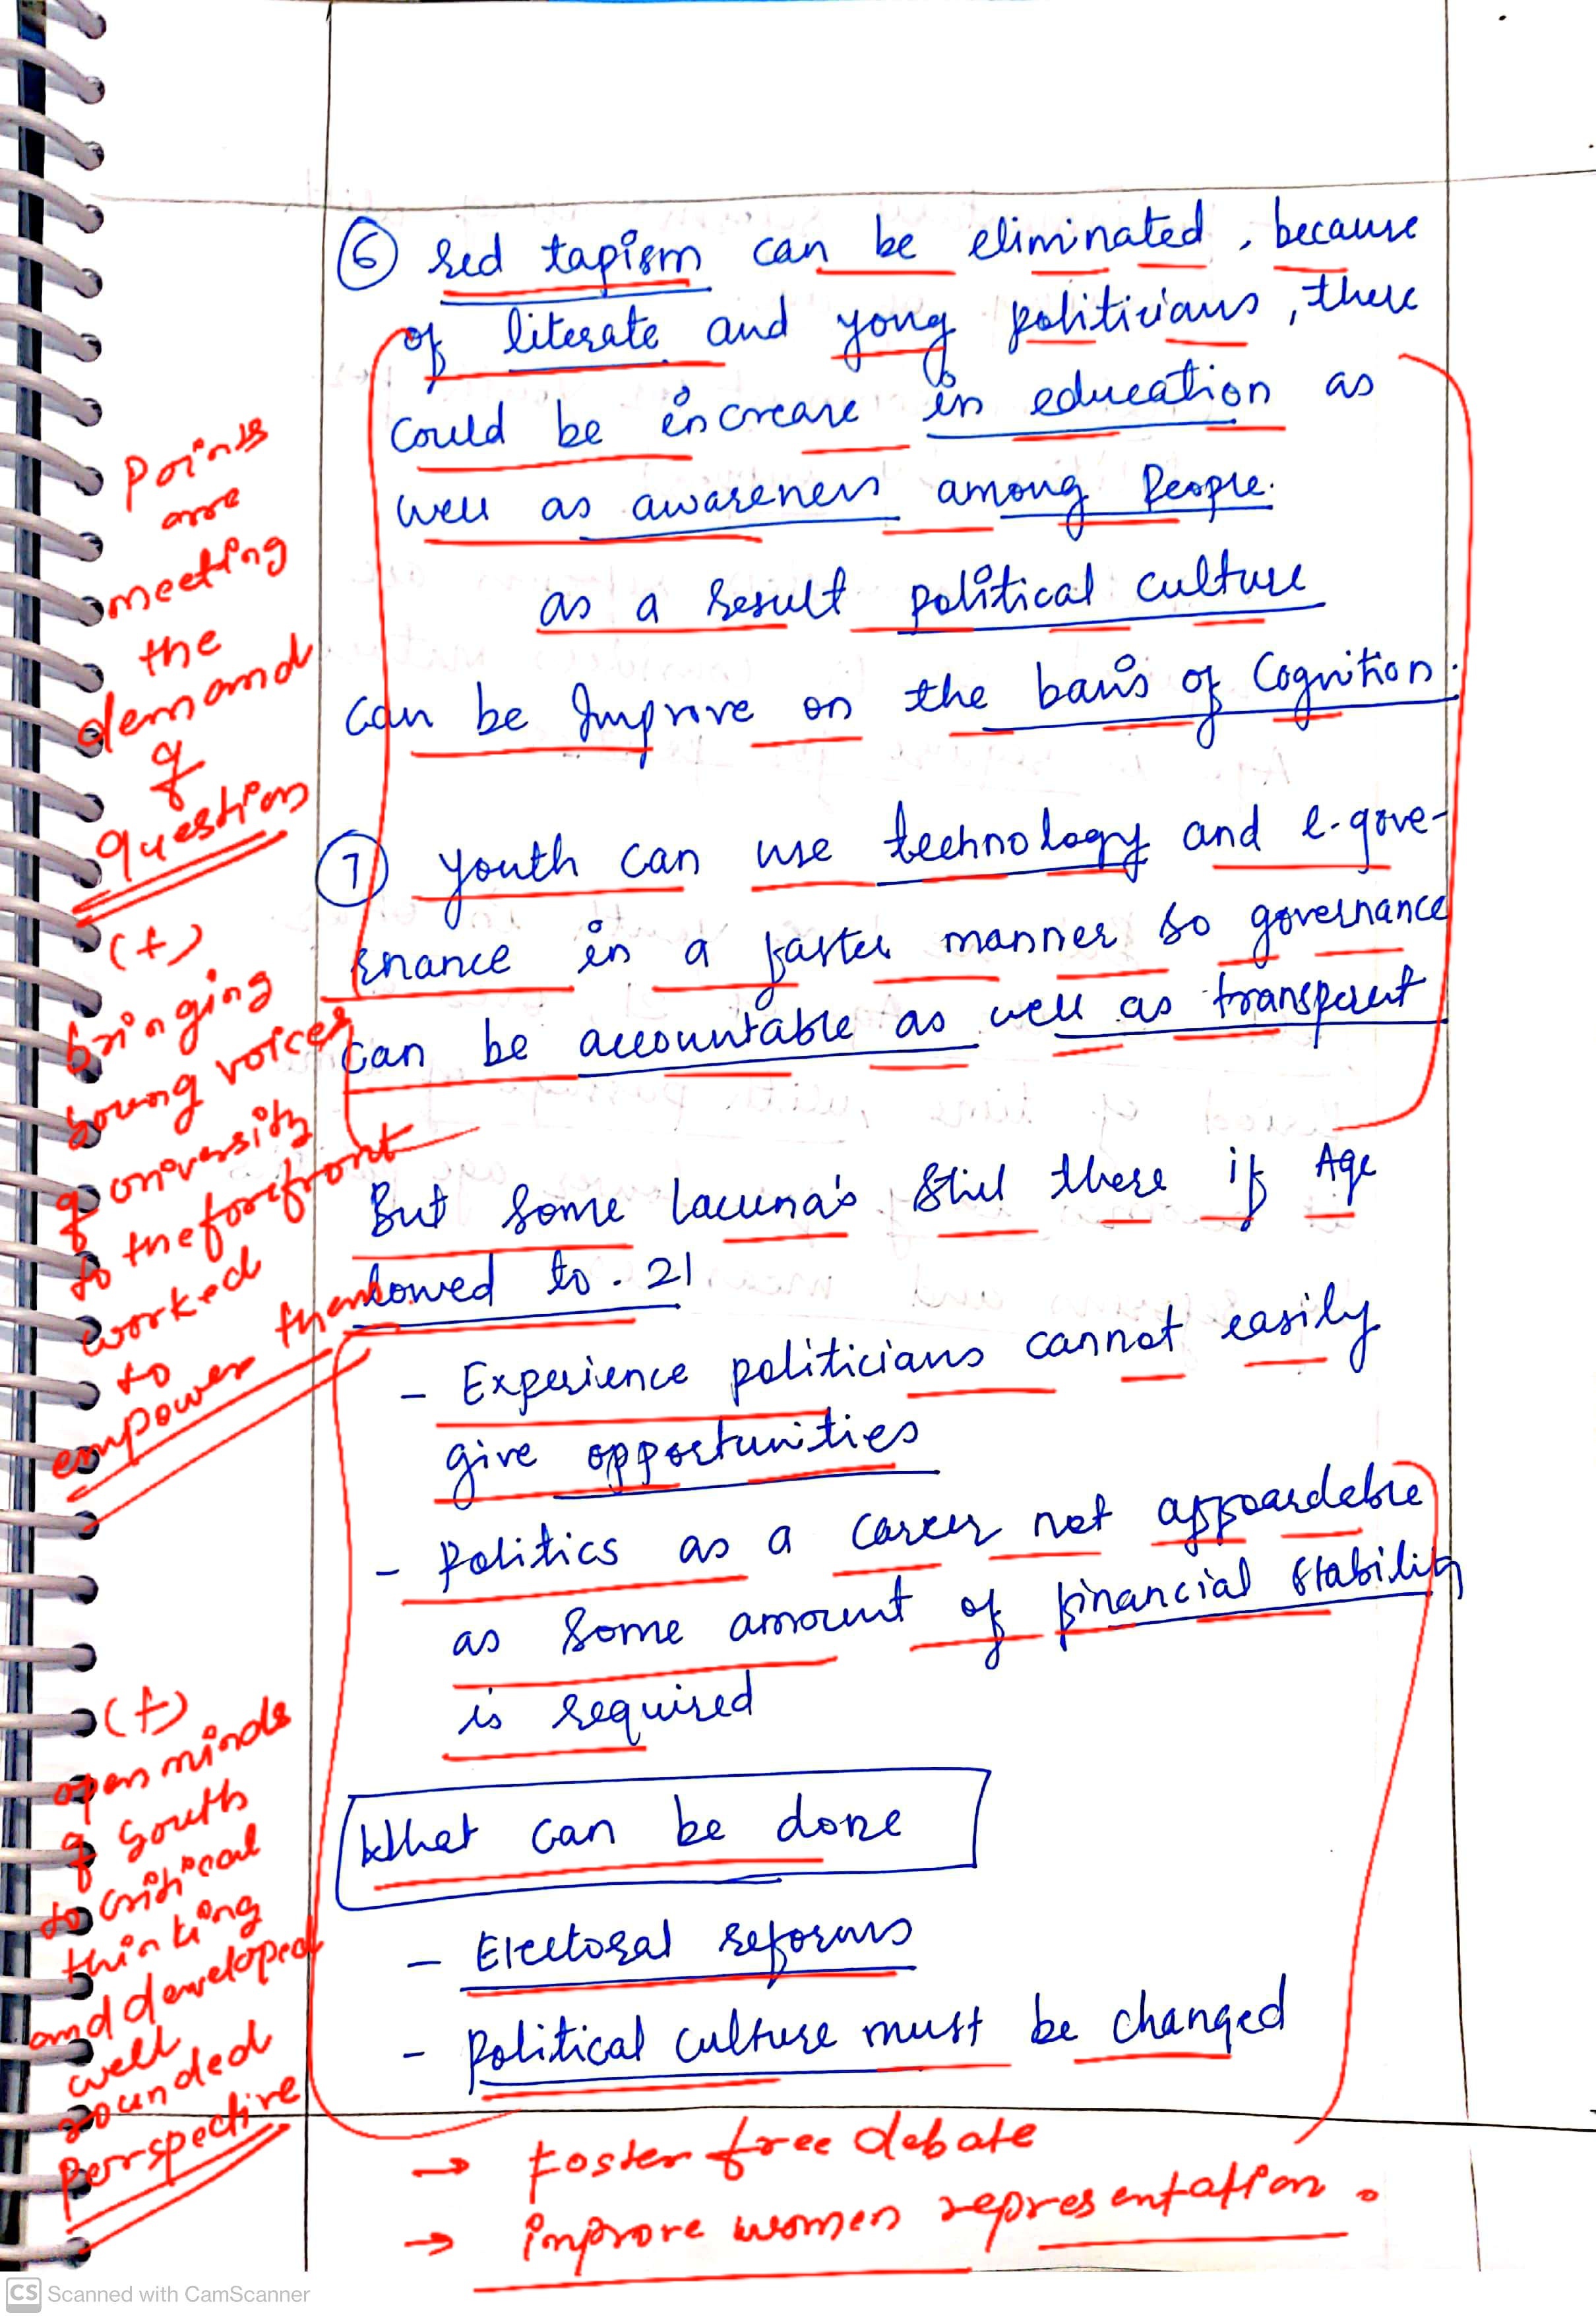 ⑥ red tapism can be eliminated, because
of literate and yong politicians, there
could be increase in education as
well as awareness among People.
as a result political culture
can be Improve on the basis of Cognition.
⑦ youth can use technology and e-gove-
rnance in a faster manner so governance
can be accountable as well as transperent
But some lacuna's still there if Age
lowed to 21
- Experience politicians cannot easily
give opportunities
- Politics as a career not affoardable
as some amount of financial stability
is required
What can be done
- Electoral reforms
- Political culture must be changed
→ Foster free debate
→ improve women representation.
Points
are
meeting
the
demand
of
question
(+)
bringing
young voices
of
to the forefront
worked
to
empower them
(+)
open minds
of youth
to critical
thinking
and developed
well
rounded
perspective
CS Scanned with CamScanner